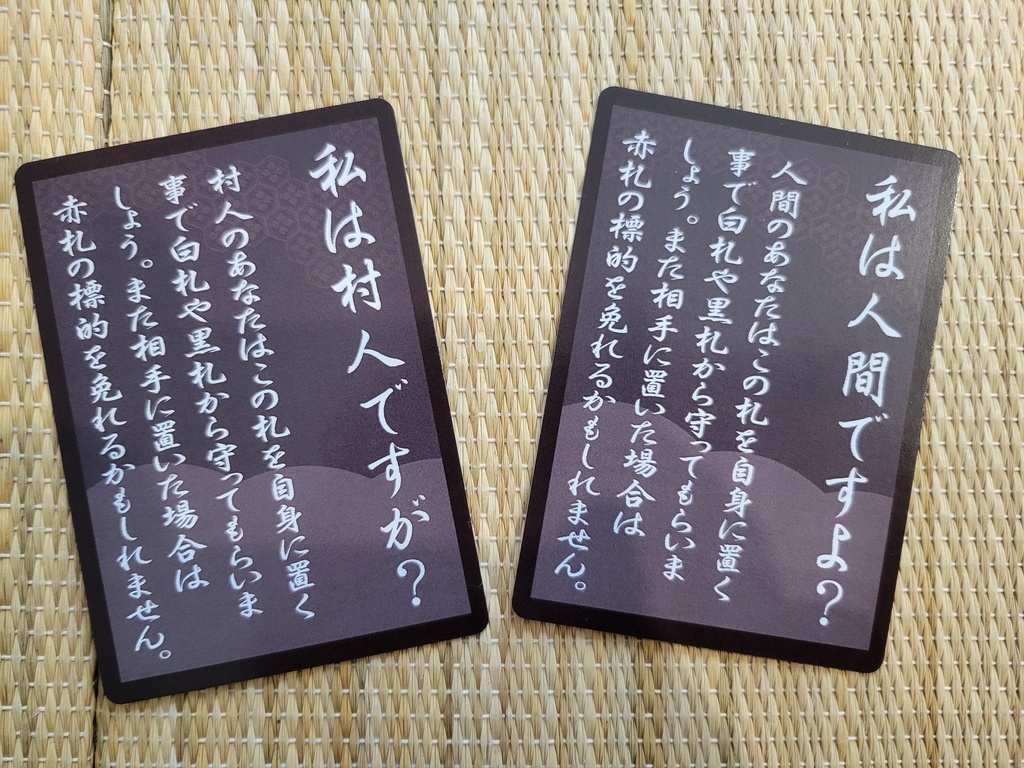 私は村人ですが？
村人のあなたはこの札を自身に置く
事で白札や黒札から守ってもらいま
しょう。また相手に置いた場合は
赤札の標的を免れるかもしれません。
私は人間ですよ？
人間のあなたはこの札を自身に置く
事で白札や黒札から守ってもらいま
しょう。また相手に置いた場合は
赤札の標的を免れるかもしれません。